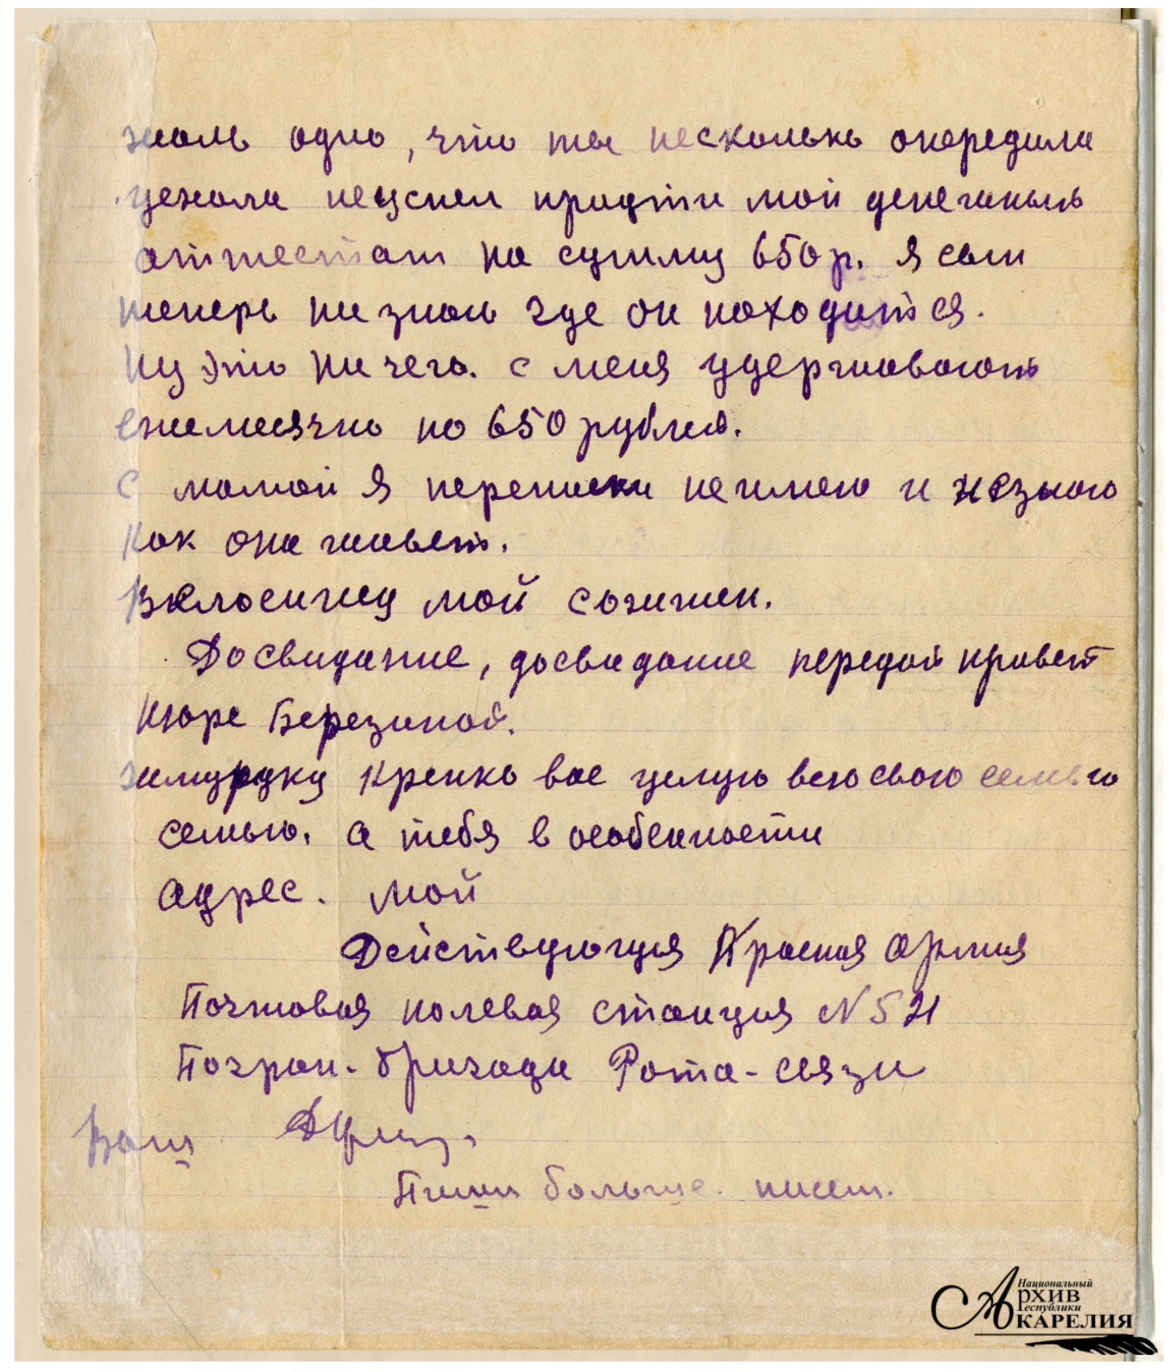 жаль одно, что ты несколько опередила
уехала неуспел придти мой денежный
аттестат на сумму 650 р. я сам
теперь не знаю где он находится.
Ну это ни чего. с меня удерживают
ежемесячно по 650 рублей.
С мамой я переписки неимею и незнаю
как она живет.
В
мой
Досвидание, досвидание передай привет
Нюре Березиной.
Жму руку крепко вас целую всю свою семью
семью. а тебя в особенности
адрес. мой
Действующия Красная армия
Почтовая полевая станция N 521
Погран-бригада Рота-связи
Ваш
Пиши больше. писем.
Национальный
Архив
Республики
Карелия